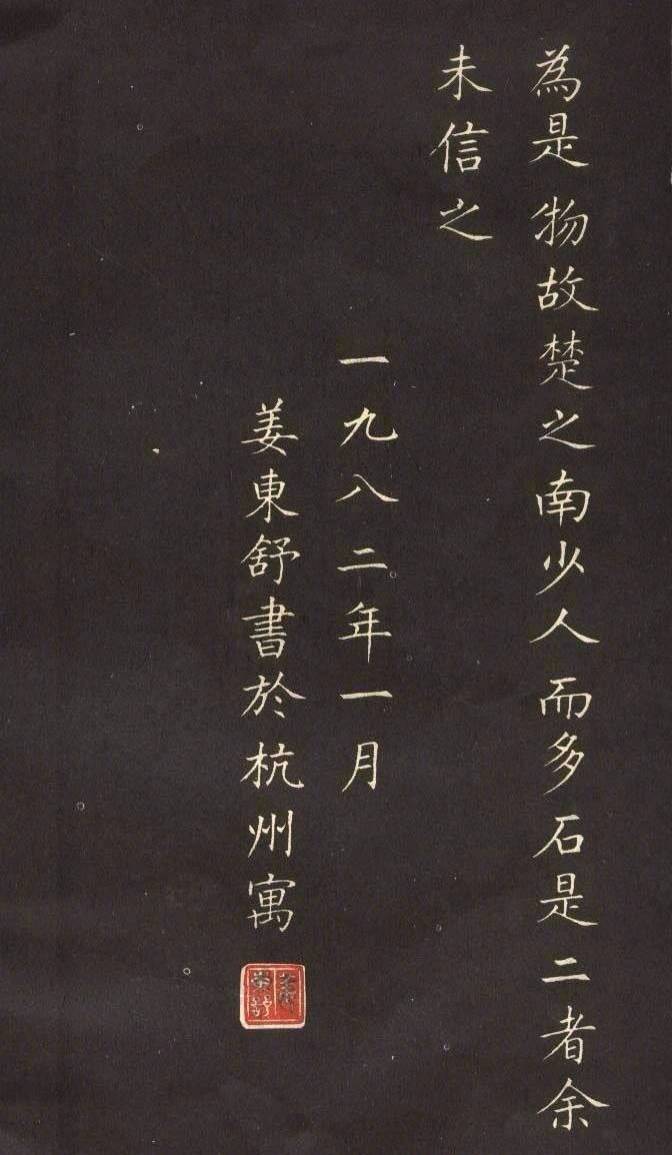 為是物故楚之南少人而多石是二者余
未信之
一九八二年一月
姜東舒書於杭州寓